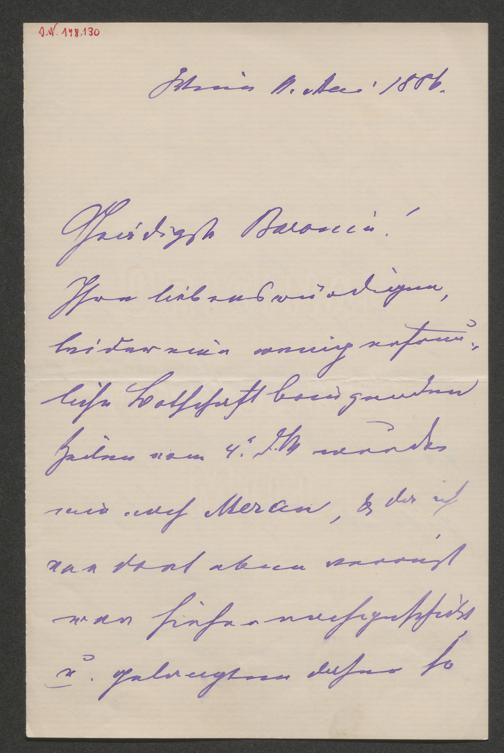 J.N. 148.130
11. Mai 1886.
Gnädigste Baronin!
Ihre liebenswürdigen,
leider nur wenig erfreu-
liche Botschaft bringenden
Zeilen vom 4. d. M. wurden
mir nach Meran, da ich
von dort eben verreist
war hieher nachgeschickt
u. gelangten daher so